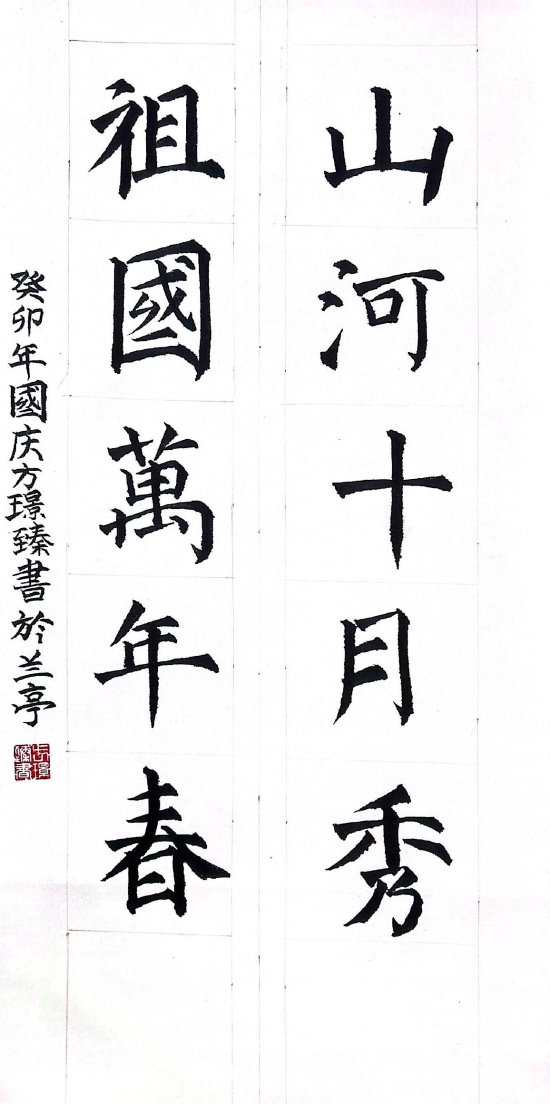 山河十月秀
祖國萬年春
癸卯年國庆方璟臻書於兰亭